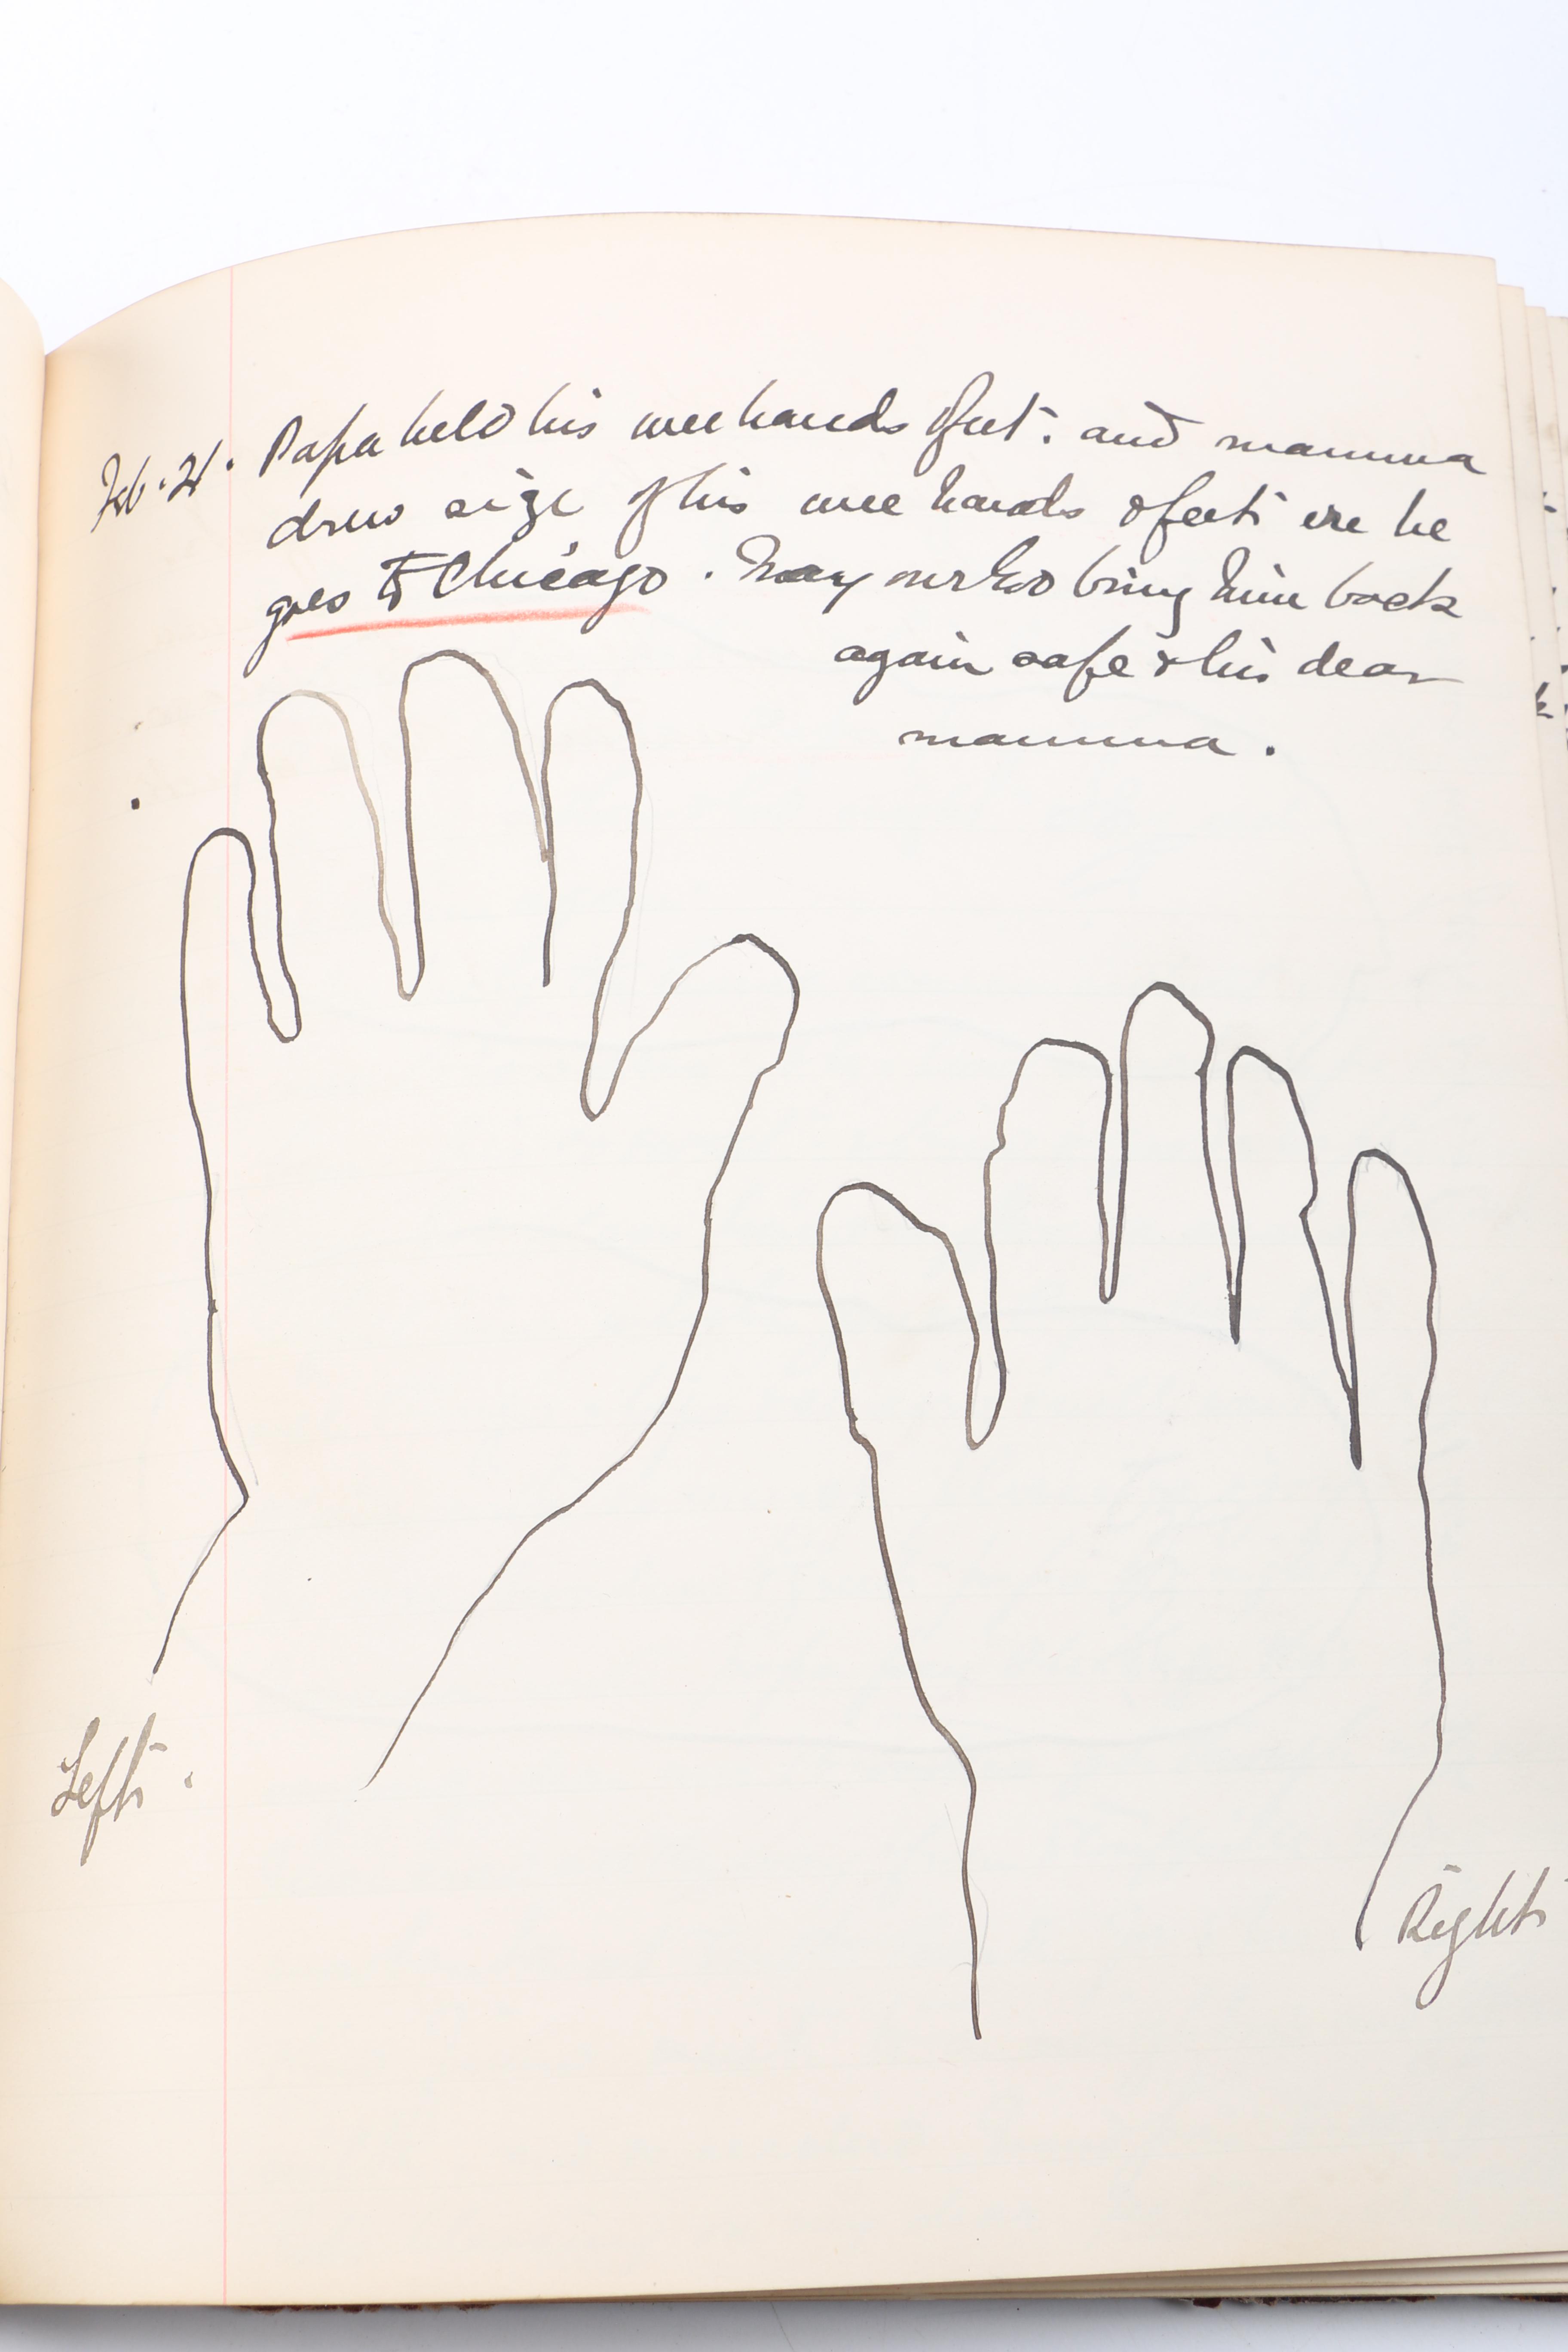 Feb. 21. Papa held his wee hands & feet. and mamma
drew size of his wee hands & feet ere he
goes to Chicago. May our God bring him back
again safe & his dear
mamma.
Left.
Right